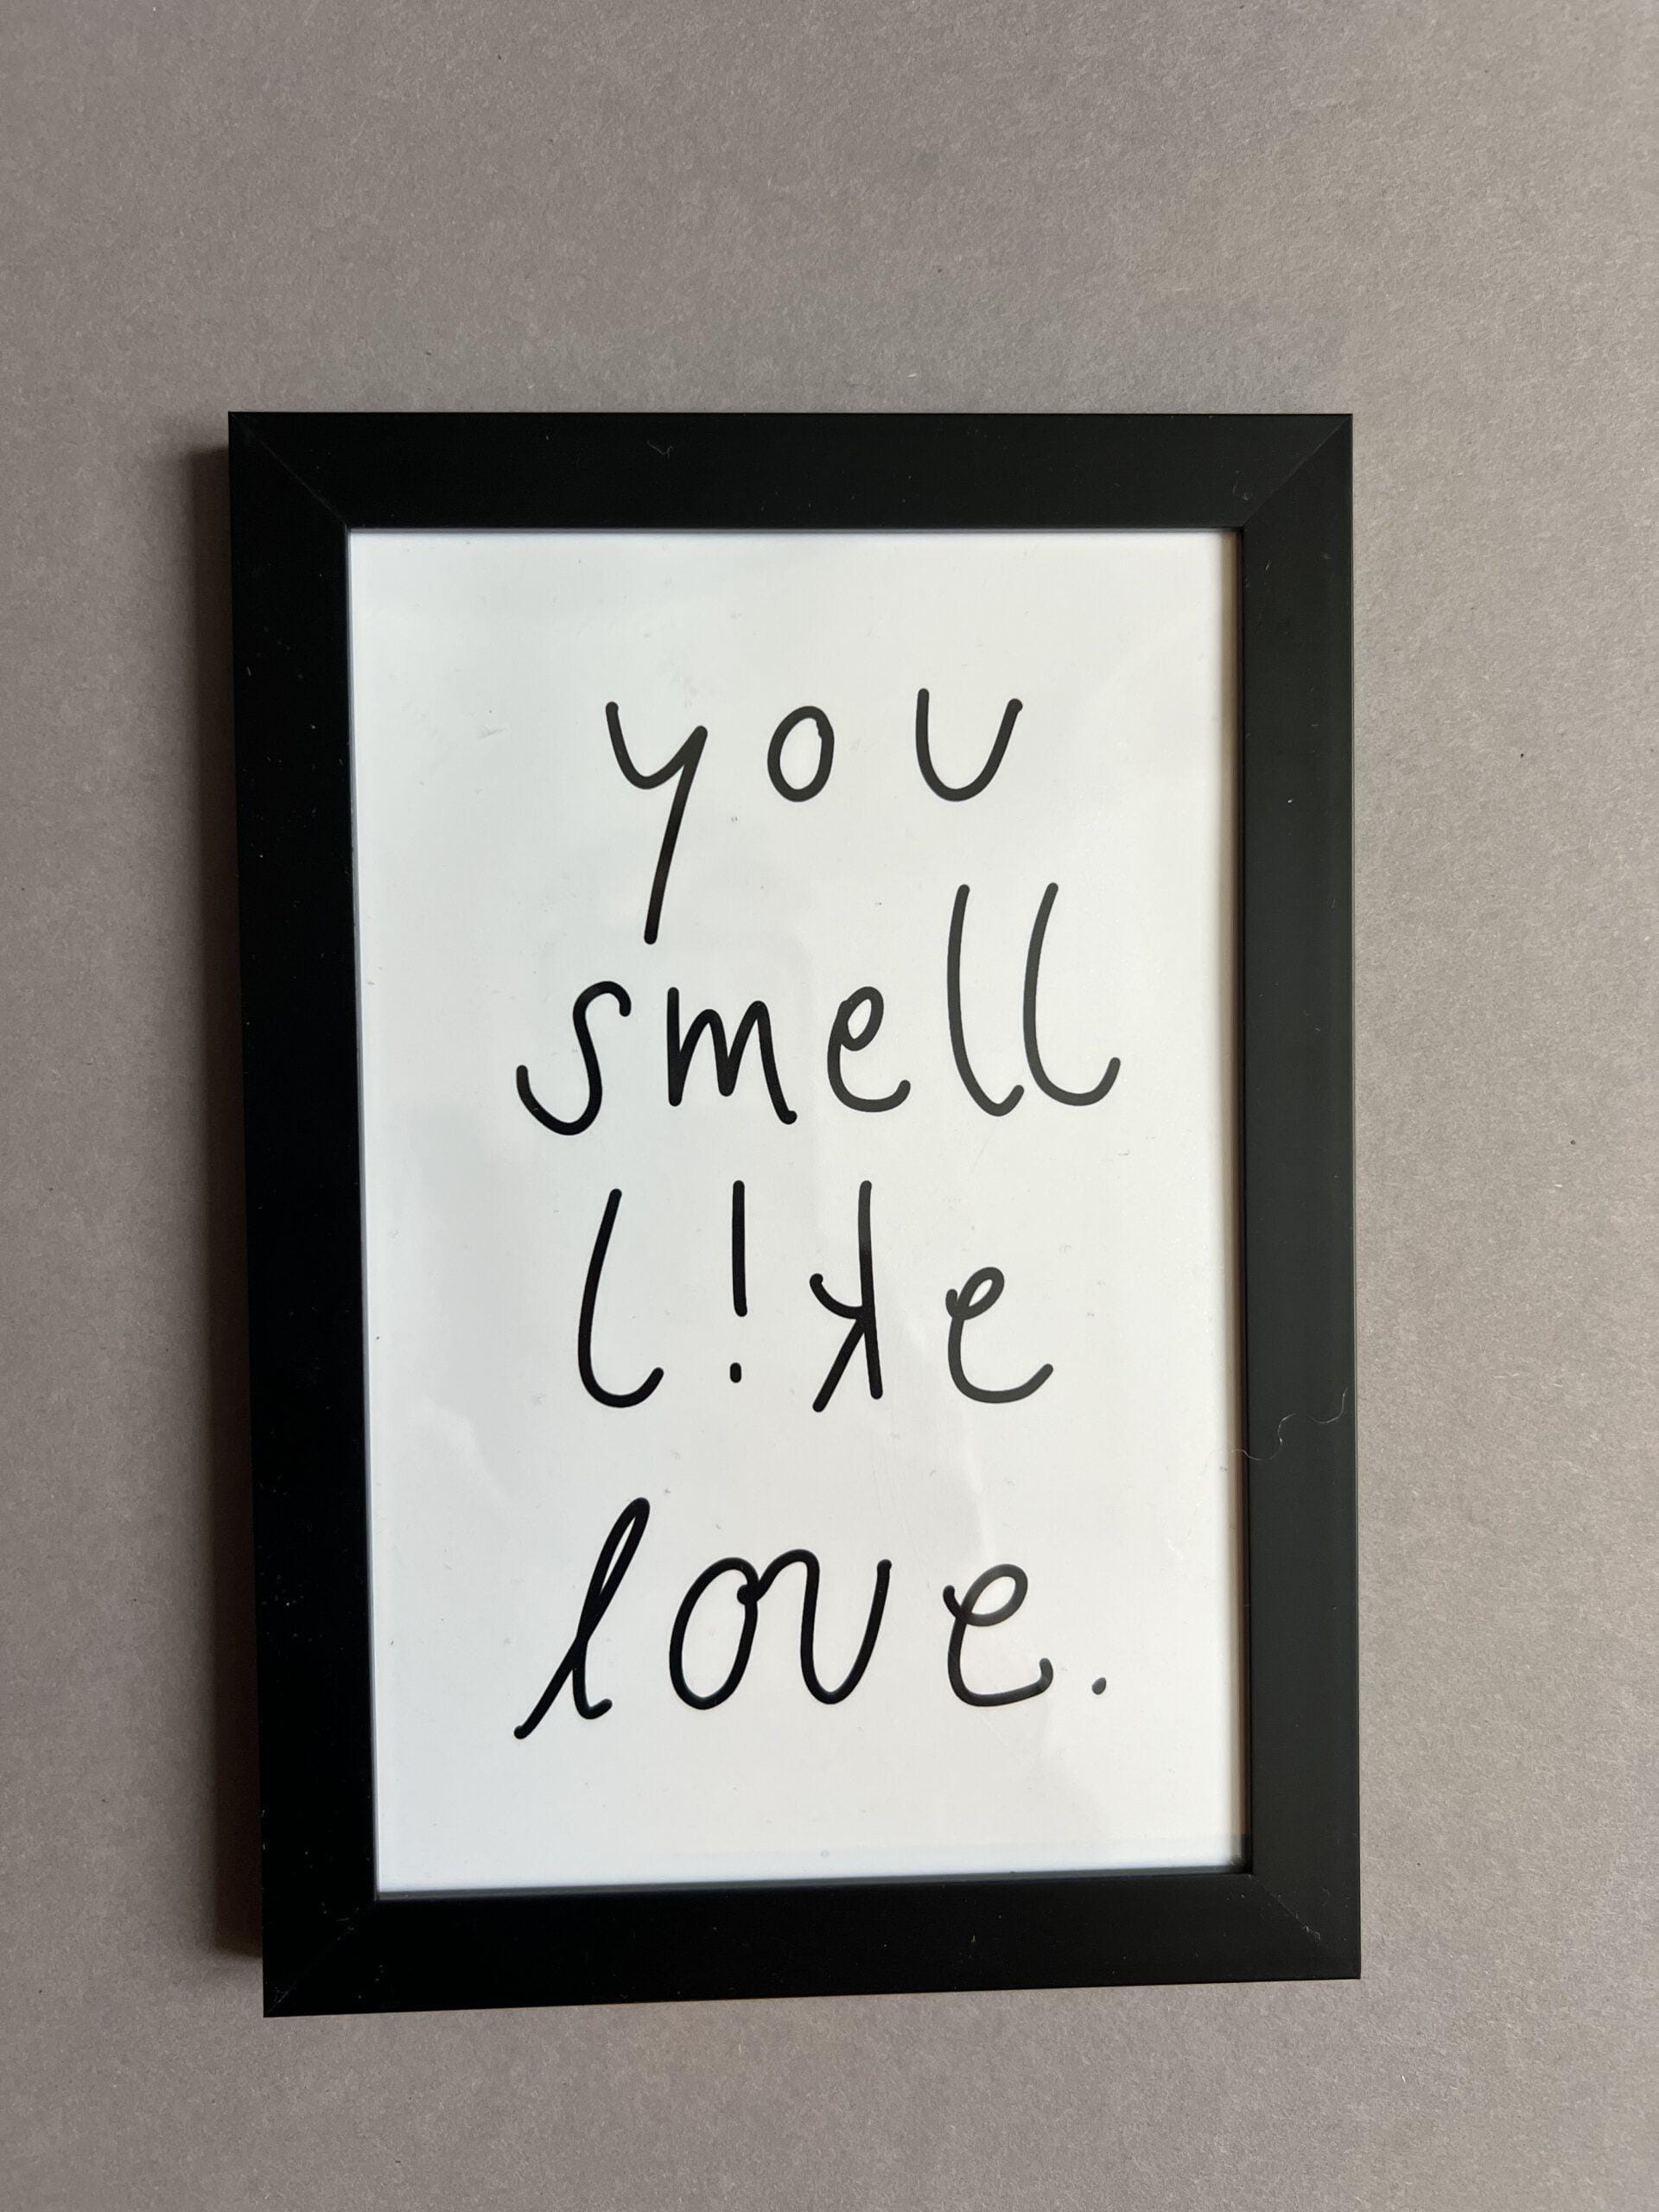 you
smell
l!ke
love.